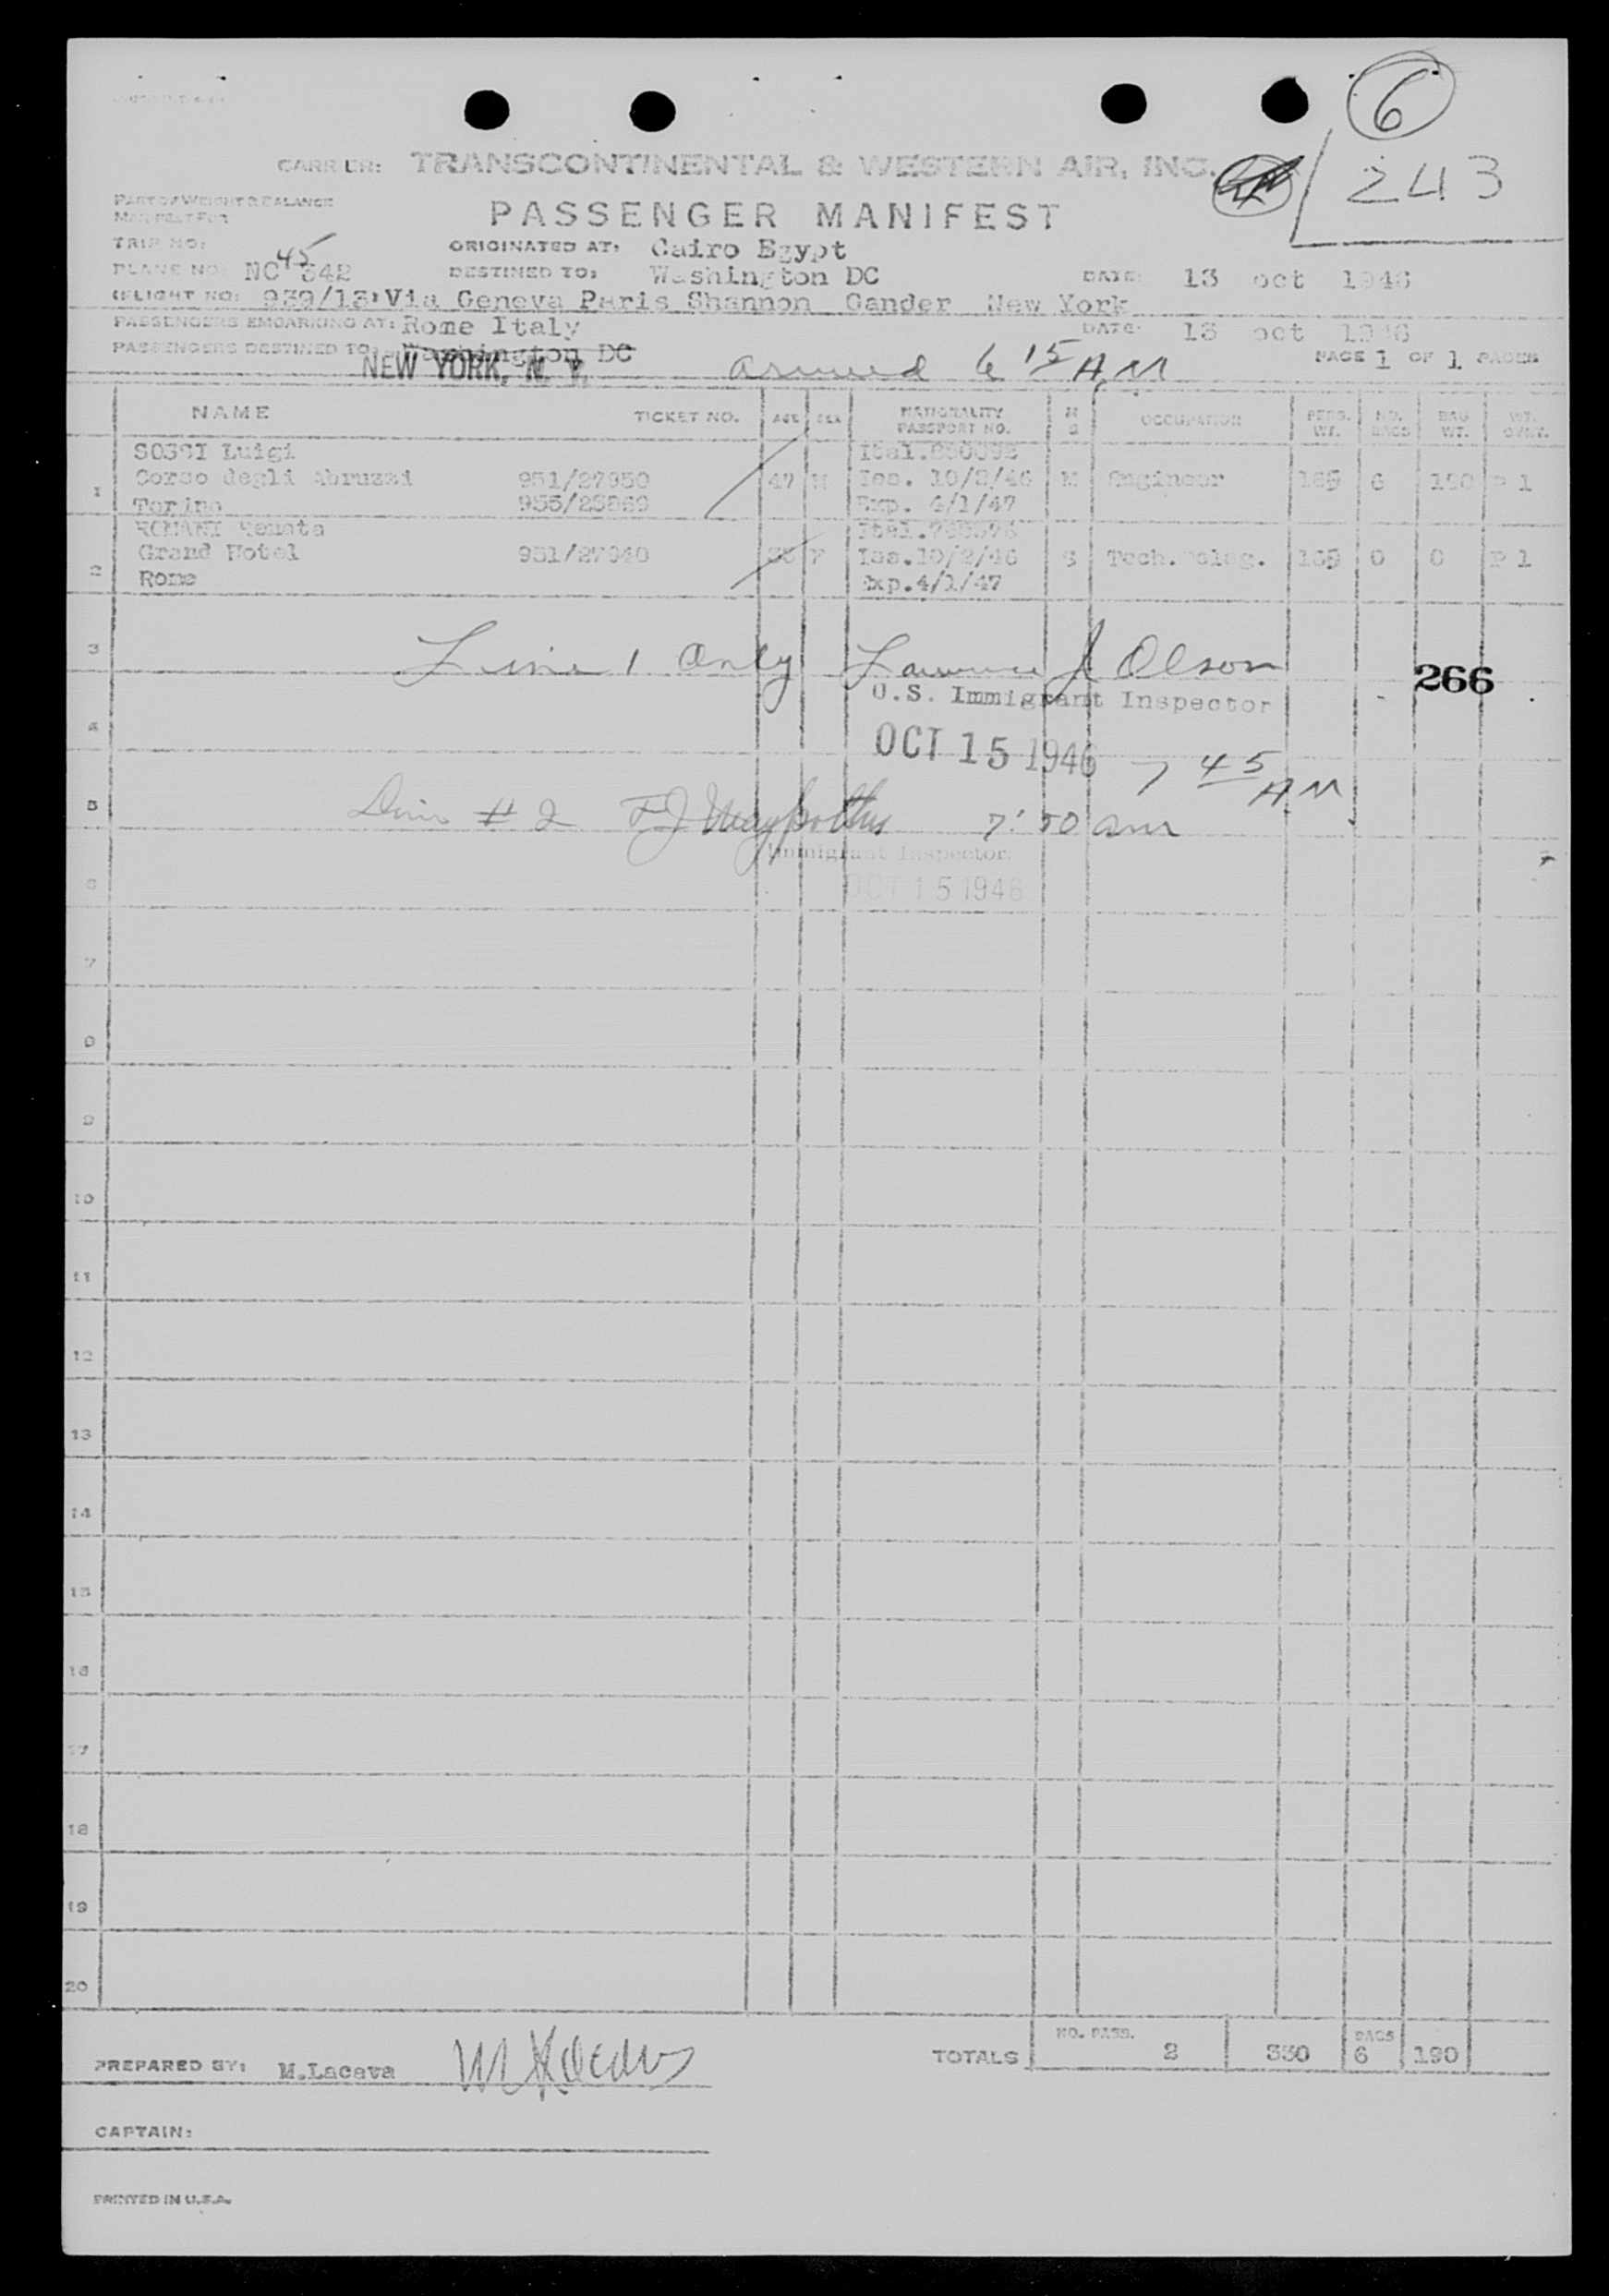 6
243
CARRIER: TRANSCONTINENTAL & WESTERN AIR, INC.
PART OF WEIGHT & BALANCE
MANIFEST FOR
PASSENGER MANIFEST
TRIP NO:
ORIGINATED AT: Cairo Egypt
PLANE NO: NC 45 342
DESTINED TO: Washington DC
DATE: 13 oct 1946
(FLIGHT NO: 939/13) Via Geneva Paris Shannon Gander New York
PASSENGERS EMBARKING AT: Rome Italy
DATE: 13 oct 1946
PASSENGERS DESTINED TO: Washington DC
NEW YORK, N. Y.
arrived 6 15 A.M
PAGE 1 OF 1 PAGES
NAME TICKET NO. AGE SEX NATIONALITY PASSPORT NO. M S OCCUPATION PERS. WT. NO. BAGS BAG WT.
Luigi Ital.
1 Corso degli Abruzzi 951/27950 47 M Iss. 10/2/46 M Engineer 165 6 190 P 1
Torino Exp. 4/1/47
ROMANI Renata Ital.
2 Grand Hotel 951/27940 F Iss.10/2/46 S Tech. 165 0 0 P 1
Rome Exp.4/1/47
3 Line 1 only Lawrence J Olson
U.S. Immigrant Inspector
266
4
OCT 15 1946 7 45 AM
5 Line # 2 7:50 am
Immigrant Inspector
6 OCT 15 1946
7
8
9
10
11
12
13
14
15
16
17
18
19
20
PREPARED BY: M.Laceva
TOTALS NO. PASS. 2 330 BAGS 6 190
CAPTAIN:
PRINTED IN U.S.A.